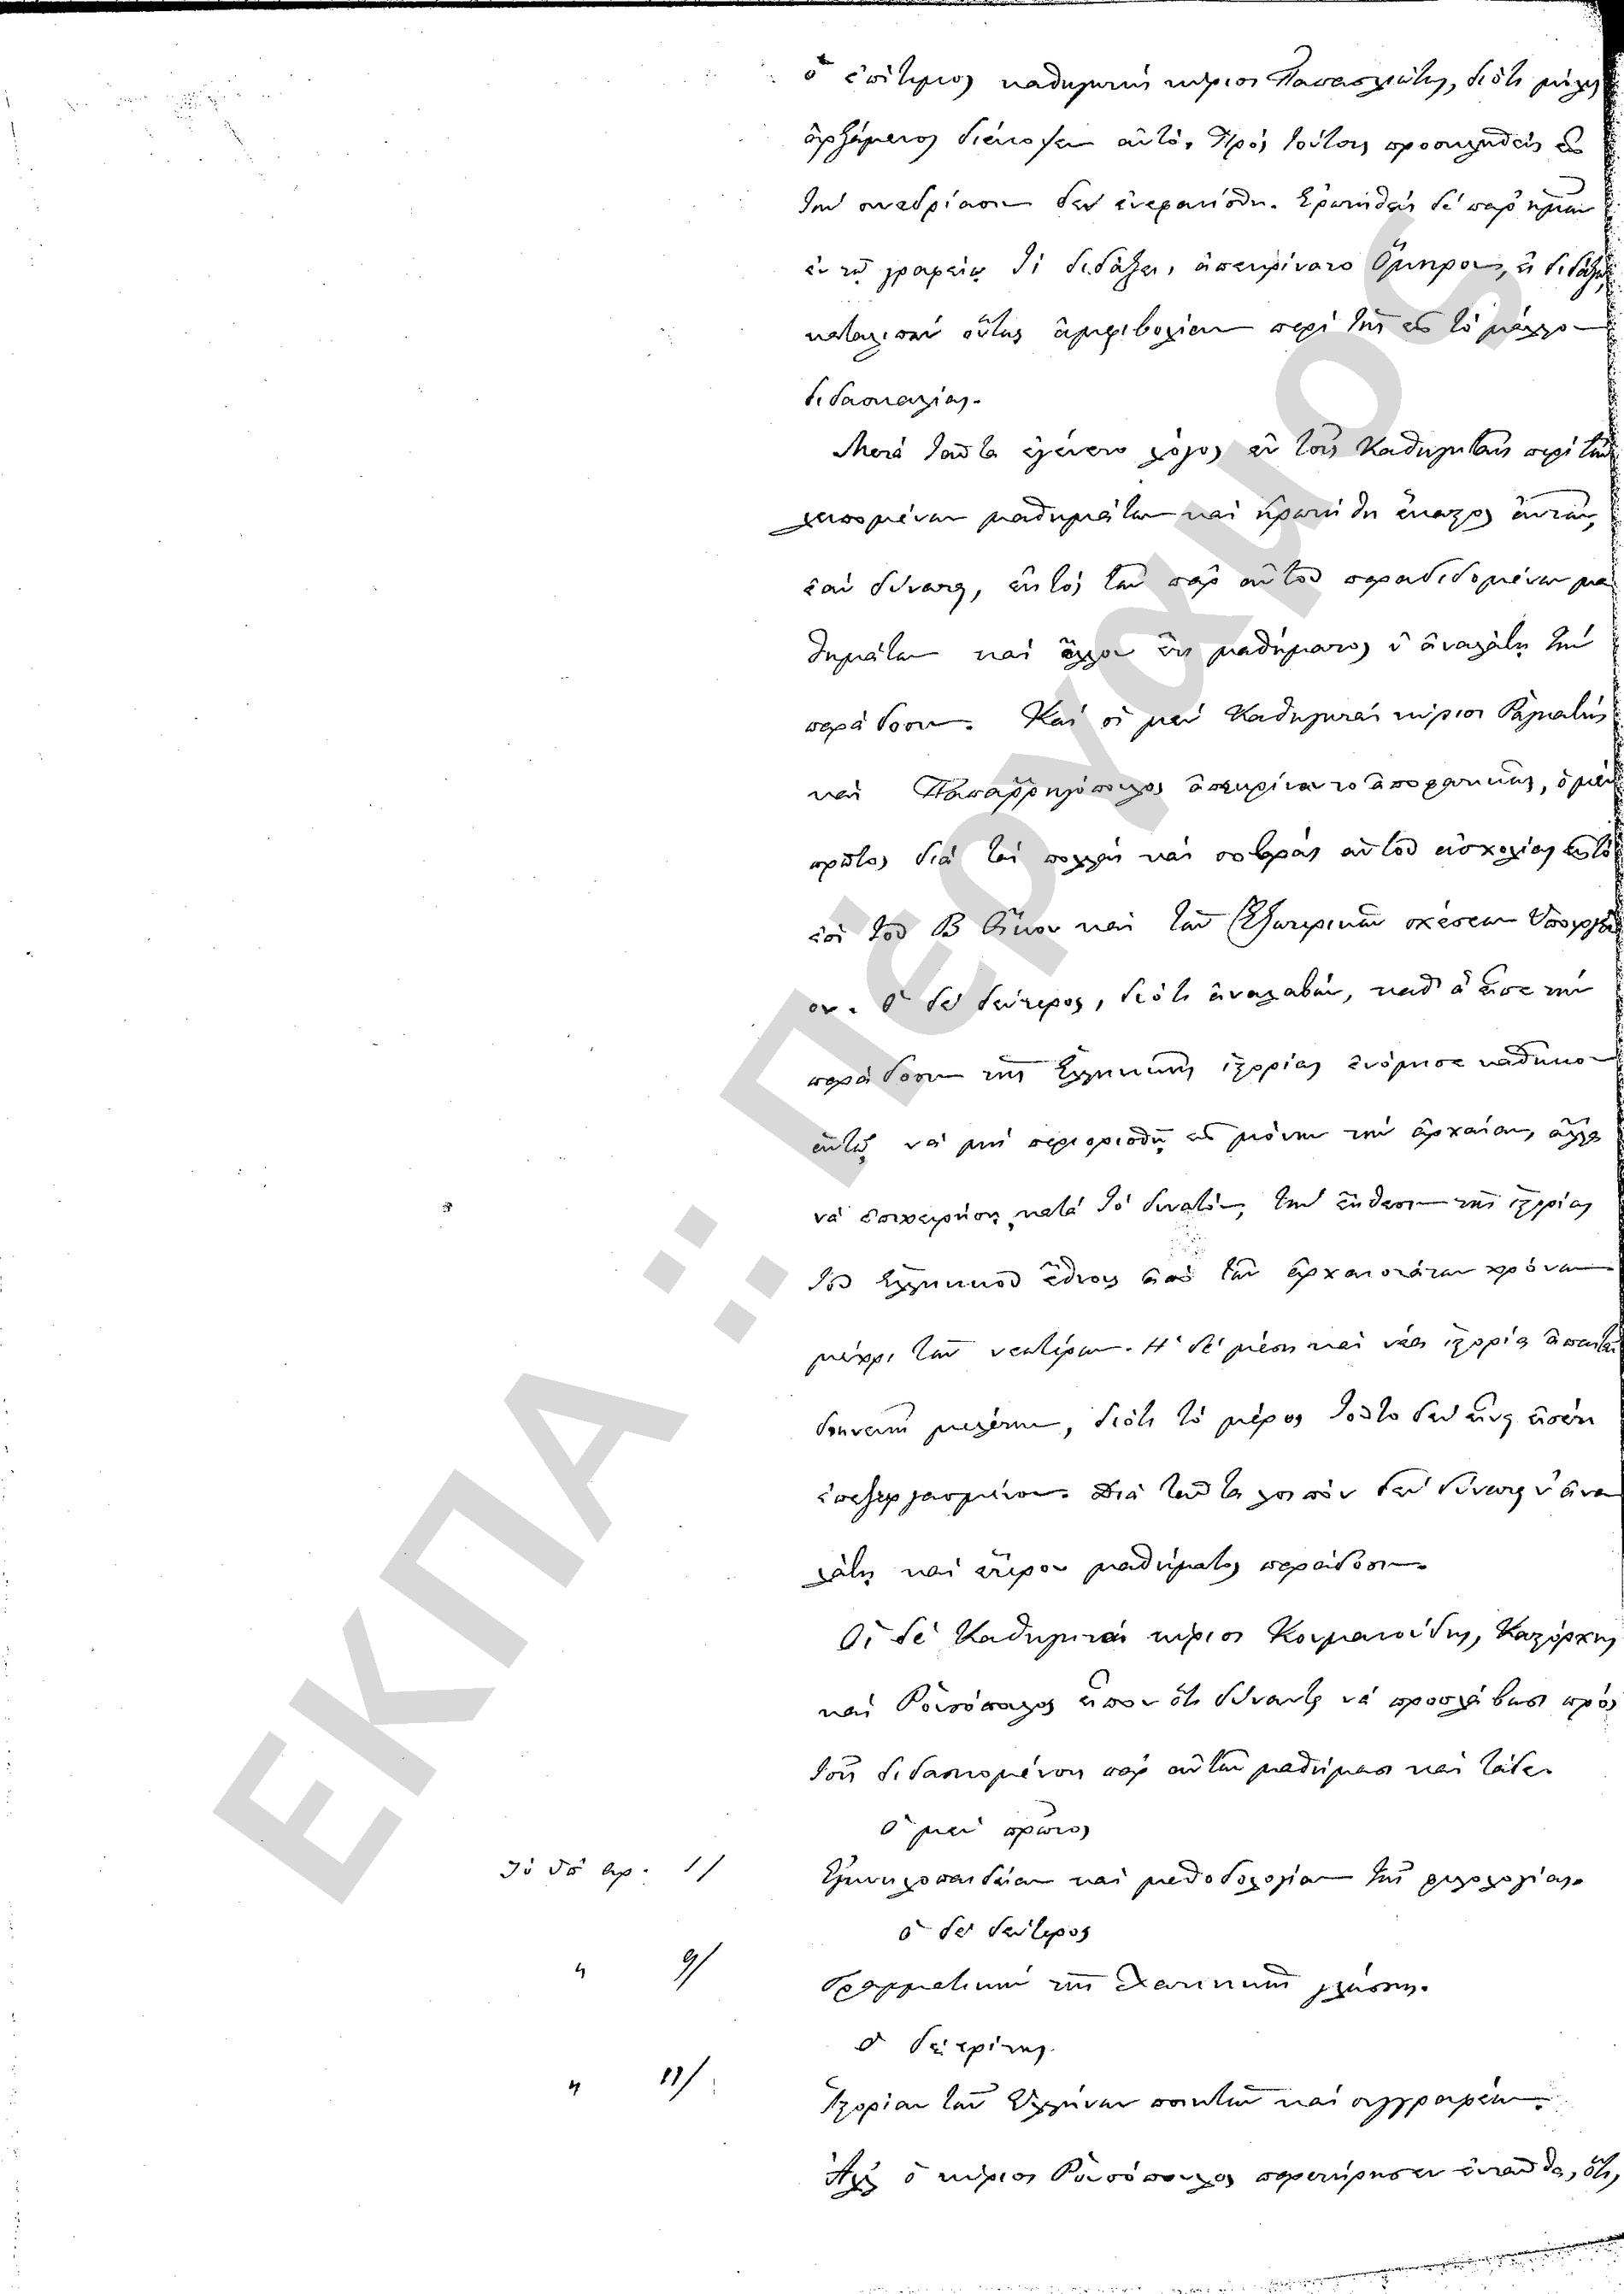 ὁ ἐπίτιμος καθηγητὴς κύριος Παπασλιώτης, διότι μόλις
ἀρξάμενος διέκοψεν αὐτό. Πρὸς τούτοις προσκληθεὶς εἰς
τὴν συνεδρίασιν δὲν ἐνεφανίσθη. Ἐρωτηθεὶς δὲ παρ' ἡμῶν
ἐν τῷ γραφείῳ τί διδάξει, ἀπεκρίνατο Ὅμηρον, ἂν διδάξω,
καταλιπὼν οὕτως ἀμφιβολίαν περὶ τῆς εἰς τὸ μέλλον
διδασκαλίας.
Μετὰ ταῦτα ἐγένετο λόγος ἐν τοῖς Καθηγηταῖς περὶ τῶν
λειπομένων μαθημάτων καὶ ἠρωτήθη ἕκαστος αὐτῶν,
ἐὰν δύναται, ἐκτὸς τῶν παρ' αὐτοῦ παραδιδομένων μα
θημάτων καὶ ἄλλου ἔτι μαθήματος ν' ἀναλάβῃ τὴν
παράδοσιν. Καὶ οἱ μὲν Καθηγηταὶ κύριοι Ῥαγκαβῆς
καὶ Παπαρρηγόπουλος ἀπεκρίναντο ἀποφατικῶς, ὁ μὲν
πρῶτος διὰ τὰς πολλὰς καὶ σοβαρὰς αὐτοῦ ἀσχολίας ὑπὸ
ἐπὶ τοῦ Β Οἴκου καὶ τῶν Ἐξωτερικῶν σχέσεων Ὑπουργεῖ
ον. Ὁ δὲ δεύτερος, διότι ἀναλαβών, καθ' ἃ εἶπε τὴν
παράδοσιν τῆς Ἑλληνικῆς ἱστορίας ἐνόμισε καθῆκον
αὐτῷ νὰ μὴ περιορισθῇ εἰς μόνην τὴν ἀρχαίαν, ἀλλὰ
νὰ ἐπιχειρήσῃ, κατὰ τὸ δυνατόν, τὴν ἔκθεσιν τῆς ἱστορίας
τοῦ Ἑλληνικοῦ ἔθνους ἀπὸ τῶν ἀρχαιοτάτων χρόνων
μέχρι τῶν νεωτέρων. Ἡ δὲ μέση καὶ νέα ἱστορία ἀπαιτεῖ
συνεχῆ μελέτην, διότι τὸ μέρος τοῦτο δὲν εἶναι εἰσέτι
ἐπεξεργασμένον. Διὰ ταῦτα λοιπὸν δὲν δύναται ν' ἀνα
λάβῃ καὶ ἑτέρου μαθήματος παράδοσιν.
Οἱ δὲ Καθηγηταὶ κύριοι Κουμανούδης, Καστόρχης
καὶ Ῥουσόπουλος εἶπον ὅτι δύνανται νὰ προσλάβωσι πρὸς
τοῖς διδασκομένοις παρ' αὐτῶν μαθήμασι καὶ τάδε.
Ὁ μὲν πρῶτος
Ἐγκυκλοπαιδείαν καὶ μεθοδολογίαν τῆς φιλολογίας.
ὁ δὲ δεύτερος
Γραμματικὴν τῆς Λατινικῆς γλώσσης.
Ὁ δὲ τρίτος
Ἱστορίαν τῶν Ἑλλήνων ποιητῶν καὶ συγγραφέων.
Ἀλλ' ὁ κύριος Ῥουσόπουλος παρετήρησεν ἐνταῦθα, ὅτι,
Τὸ ὑπ' ἀρ. 1/
" 9/
" 11/
ΕΚΠΑ :: Πέργαμος